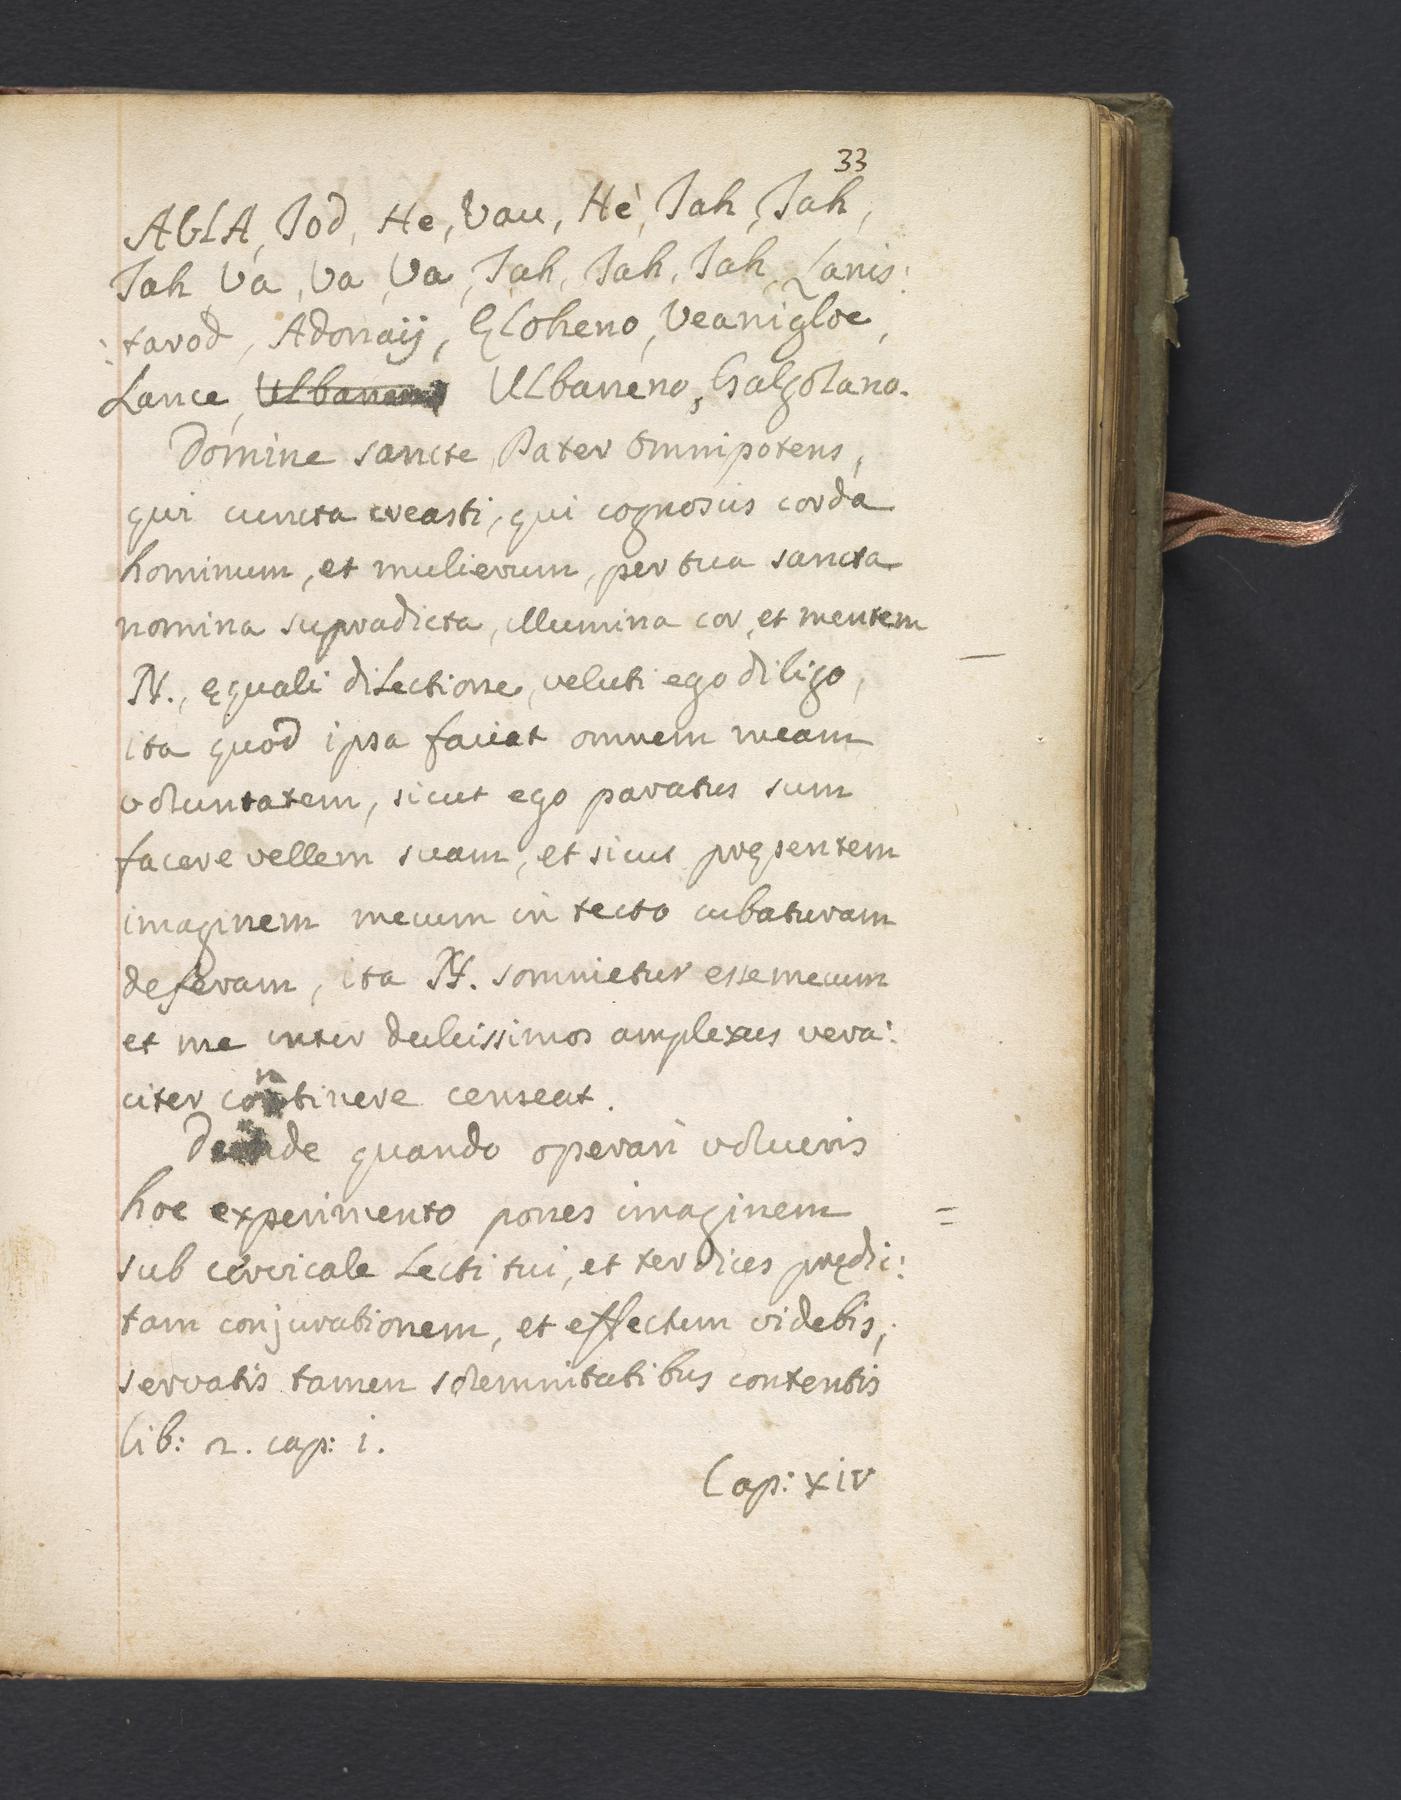 33
AGLA, Jod, He, Vau, Hè, Jah, Jah,
Jah Va, Va, Va, Jah, Jah, Jah, Lanis:
:tavod, Adonaij, Ęloheno, Veanigloe,
Lance, Ulbaneno Ulbaneno, Galgolano.
Domine sancte Pater omnipotens,
qui cuncta creasti, qui cognoscis corda
hominum, et mulierum, per tua sancta
nomina supradicta, illumina cor, et mentem
N., ęquali dilectione, veluti ego diligo,
ita quod ipsa faciat omnem meam
voluntatem, sicut ego paratus sum
facere vellem suam, et sicut pręsentem
imaginem mecum in tecto cubaturam
deferam, ita N. somnietur esse mecum
et me inter dulcissimos amplexus vera:
citer continere censeat.
Deinde quando operari volueris
hoc experimento pones imaginem
sub cervicale lecti tui, et ter dices prędic:
tam conjurationem, et effectum videbis;
servatis tamen solemnitatibus contentis
lib: 2. cap: i.
Cap: xiv